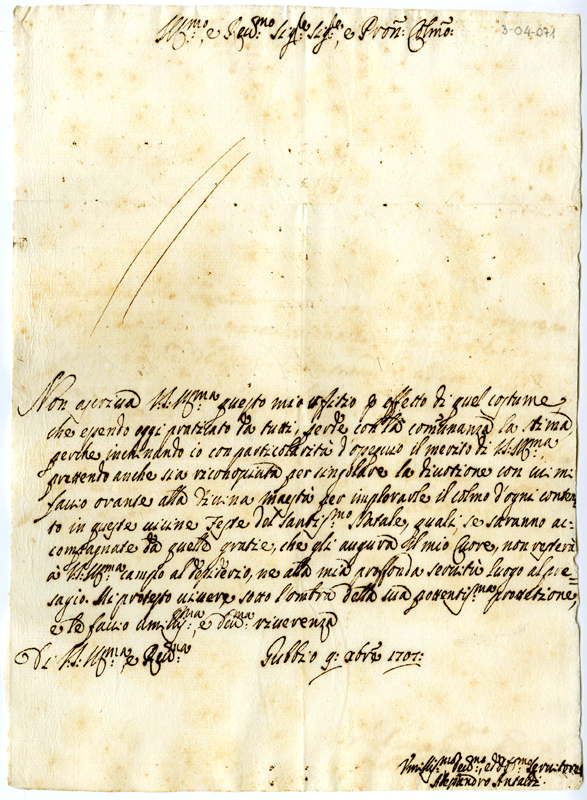 Ill:mo, e Reu:mo Sig:re Sig:re, e Pron: Colmo:
3-04-071
Non ascriua V.S. Ill:ma questo mio ufitio p effetto di quel costume,
che essendo oggi praticato da tutti, perde con la comunanza la stima,
perche inchinando io con particolarità d'ossequio il merito di V.S. Ill:ma,
pretendo anche sia riconosciuta per singolare la diuotione con cui mi
faccio auante alla Diuina maestà per implorarle il colmo d'ogni conten
to in queste uicine Feste del Santis:mo Natale, quali se saranno ac:
compagnate da quelle gratie, che gli augura il mio Cuore, non resterà
à V.S. Ill:ma campo al desiderio, ne alla mia profonda seruitù luogo al pre=
sagio. Mi protesto uiuere sotto l'ombra della sua potentis:ma protettione,
e le faccio Umilis:ma, e deu:ma riuerenza
Di V.S. Ill:ma, e Reu:ma Gubbio 9:abre 1707:
Vmilis:mo Deu:mo, ed Obl:mo Seruitore
Alessandro Antaldi